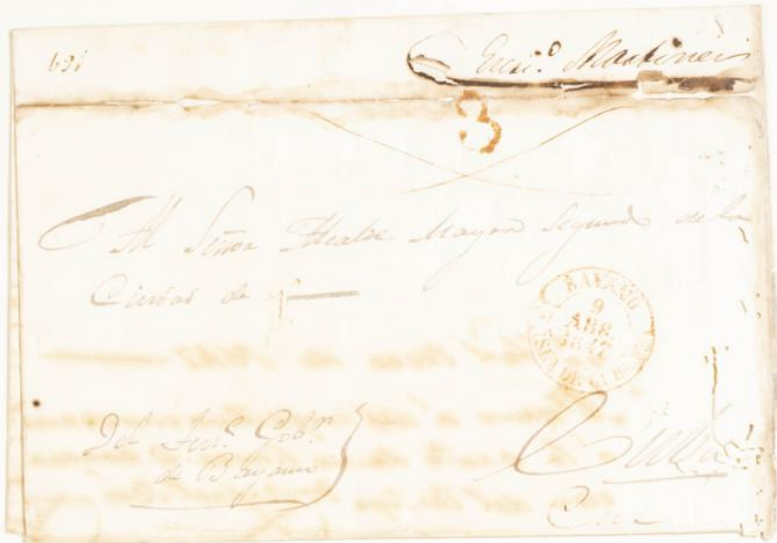 691
Escri.º Martinez
3
Al Señor Alcalde Mayor Segundo de la
Ciudad de
BAYAMO
9
ABR
1847
ISLA DE CUBA
Del Gob.ʳ
de Bayamo
Cuba